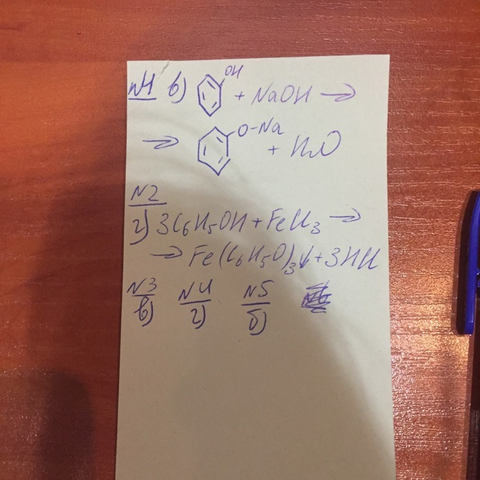 №1 в) OH + NaOH →
→ O-Na + H₂O
№2
г) 3C₆H₅OH + FeCl₃ →
→ Fe(C₆H₅O)₃↓ + 3HCl
№3 №4 №5
в) г) б)